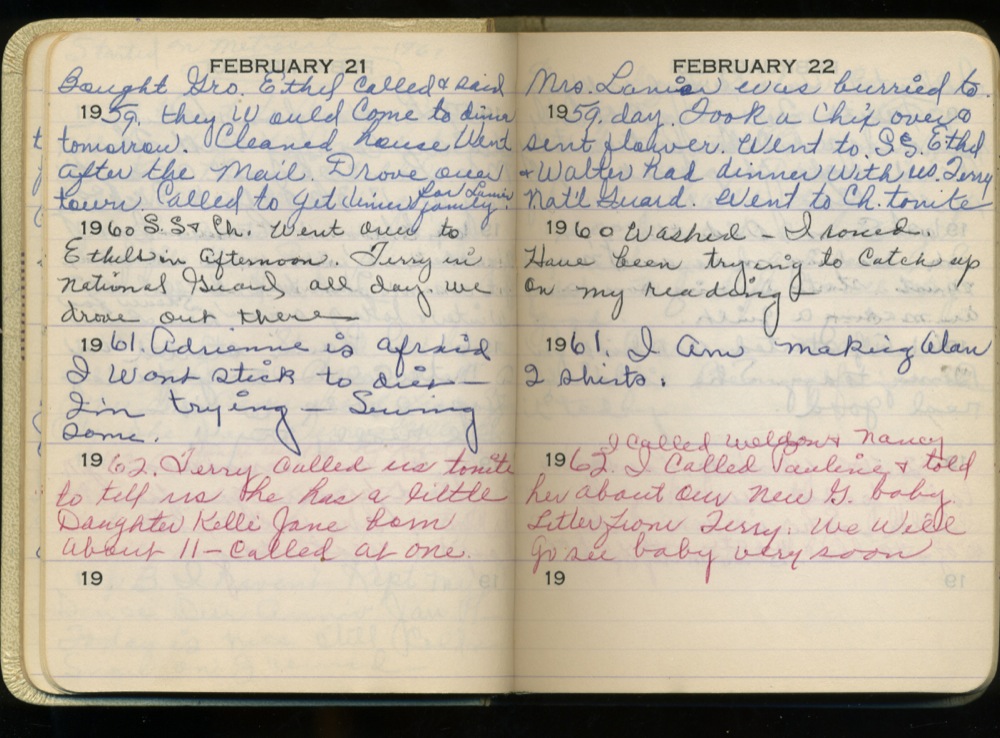 FEBRUARY 21
Bought Gro. Ethel called & said
1959. they Would Come to dinner
tomorrow. Cleaned house Went
after the Mail. Drove over
town Called to get dinner for Lanier
family.
1960 S.S & Ch. Went over to
Ethels in afternoon. Terry in
National Guard all day. we
drove out there
1961. Adrienne is afraid
I Wont stick to diet -
I'm trying - Sewing
some.
1962. Terry called us tonite
to tell us he has a little
Daughter Kelli Jane born
about 11 - called at one.
19
FEBRUARY 22
Mrs. Lanier was burried to
1959. day. Took a chix over &
sent flower. Went to S.S. Ethel
& Walter had dinner with us. Terry
Nat'l Guard. Went to Ch. tonite
1960 Washed - Ironed.
Have been trying to Catch up
on my reading
1961. I Am making Alan
2 shirts.
I called Weldon & Nancy
1962. I Called Pauline & told
her about our New G. baby.
Letter from Terry. We Will
Go see baby very soon
19